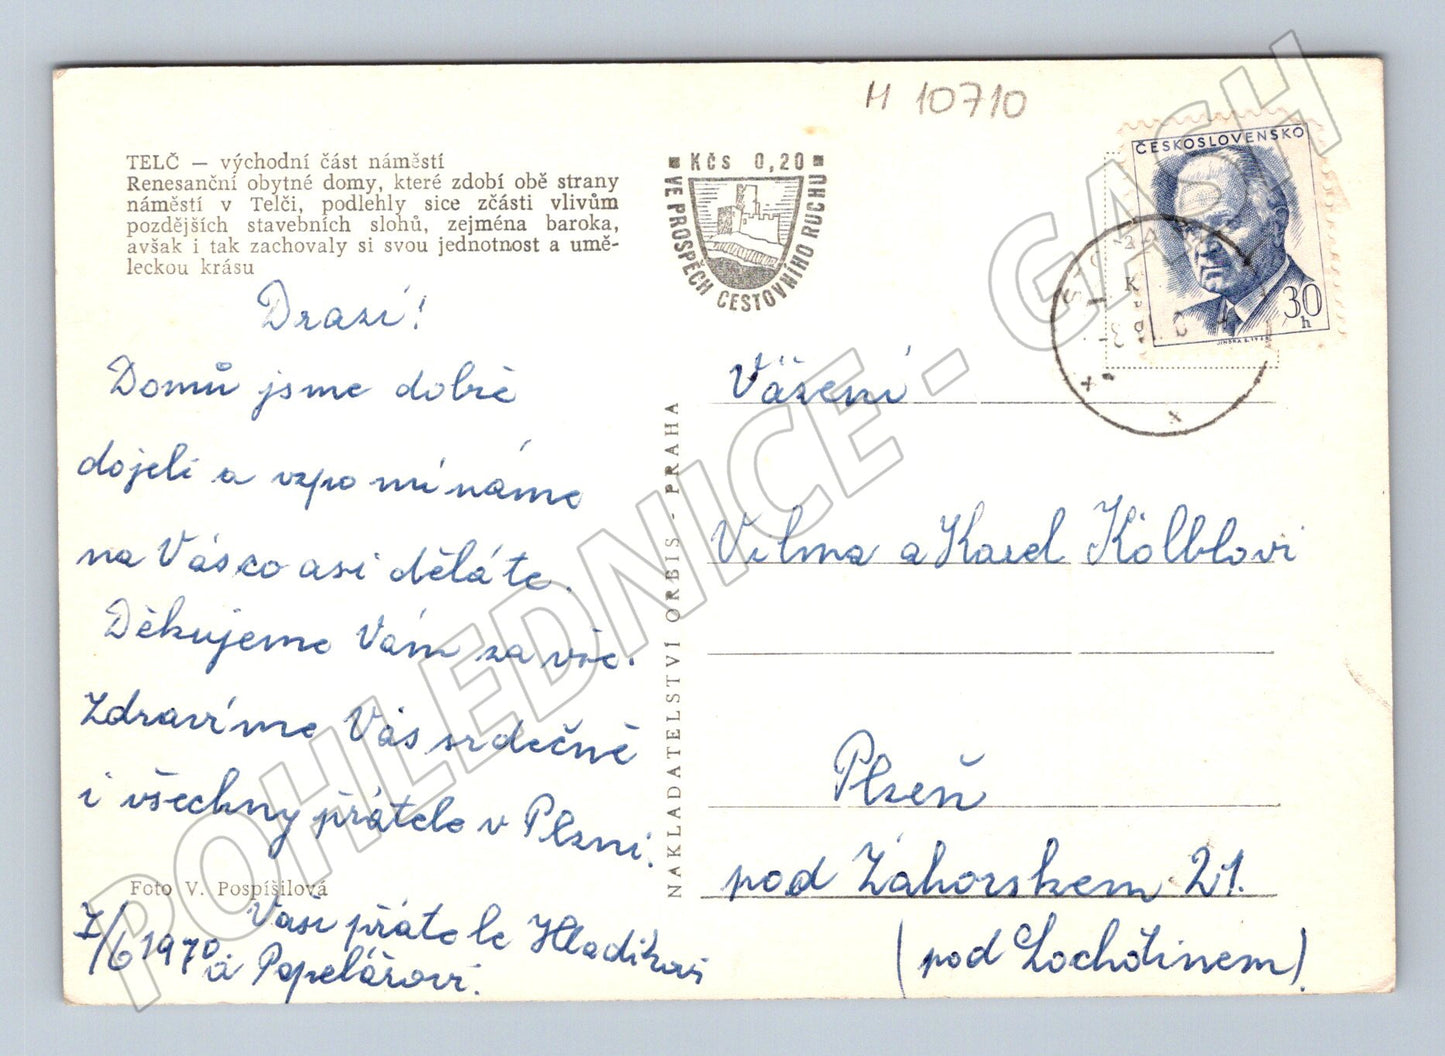 M 10710
TELČ — východní část náměstí
Renesanční obytné domy, které zdobí obě strany
náměstí v Telči, podlehly sice zčásti vlivům
pozdějších stavebních slohů, zejména baroka,
avšak i tak zachovaly si svou jednotnost a umě-
leckou krásu
Drazí!
Domů jsme dobře
dojeli a vzpomínáme
na Vás co asi děláte.
Děkujeme Vám za vše.
Zdravíme Vás srdečně
i všechny přátele v Plzni.
Foto V. Pospíšilová
7/6 1970
Vaši přátele Hladíkovi
a Popelářovi.
KČS 0,20
VE PROSPĚCH CESTOVNÍHO RUCHU
NAKLADATELSTVÍ ORBIS - PRAHA
ČESKOSLOVENSKO
30
h
Vážení
Vilma a Karel Kölblovi
Plzeň
pod Záhorskem 21.
(pod Lochotínem)
POHLEDNICE - GASH